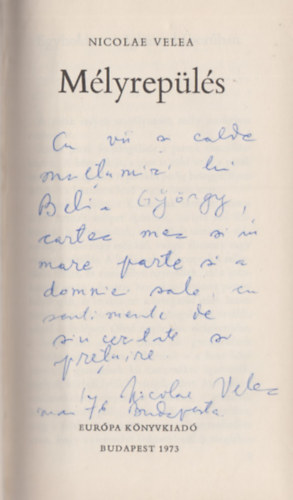 NICOLAE VELEA
Mélyrepülés
Cu vii si calde
multumiri lui
Belia György,
cartea mea si in
mare parte si a
domniei sale, cu
sentimente de
sinceritate si
pretuire
Nicolae Velea
mai 76 Budapesta
EURÓPA KÖNYVKIADÓ
BUDAPEST 1973